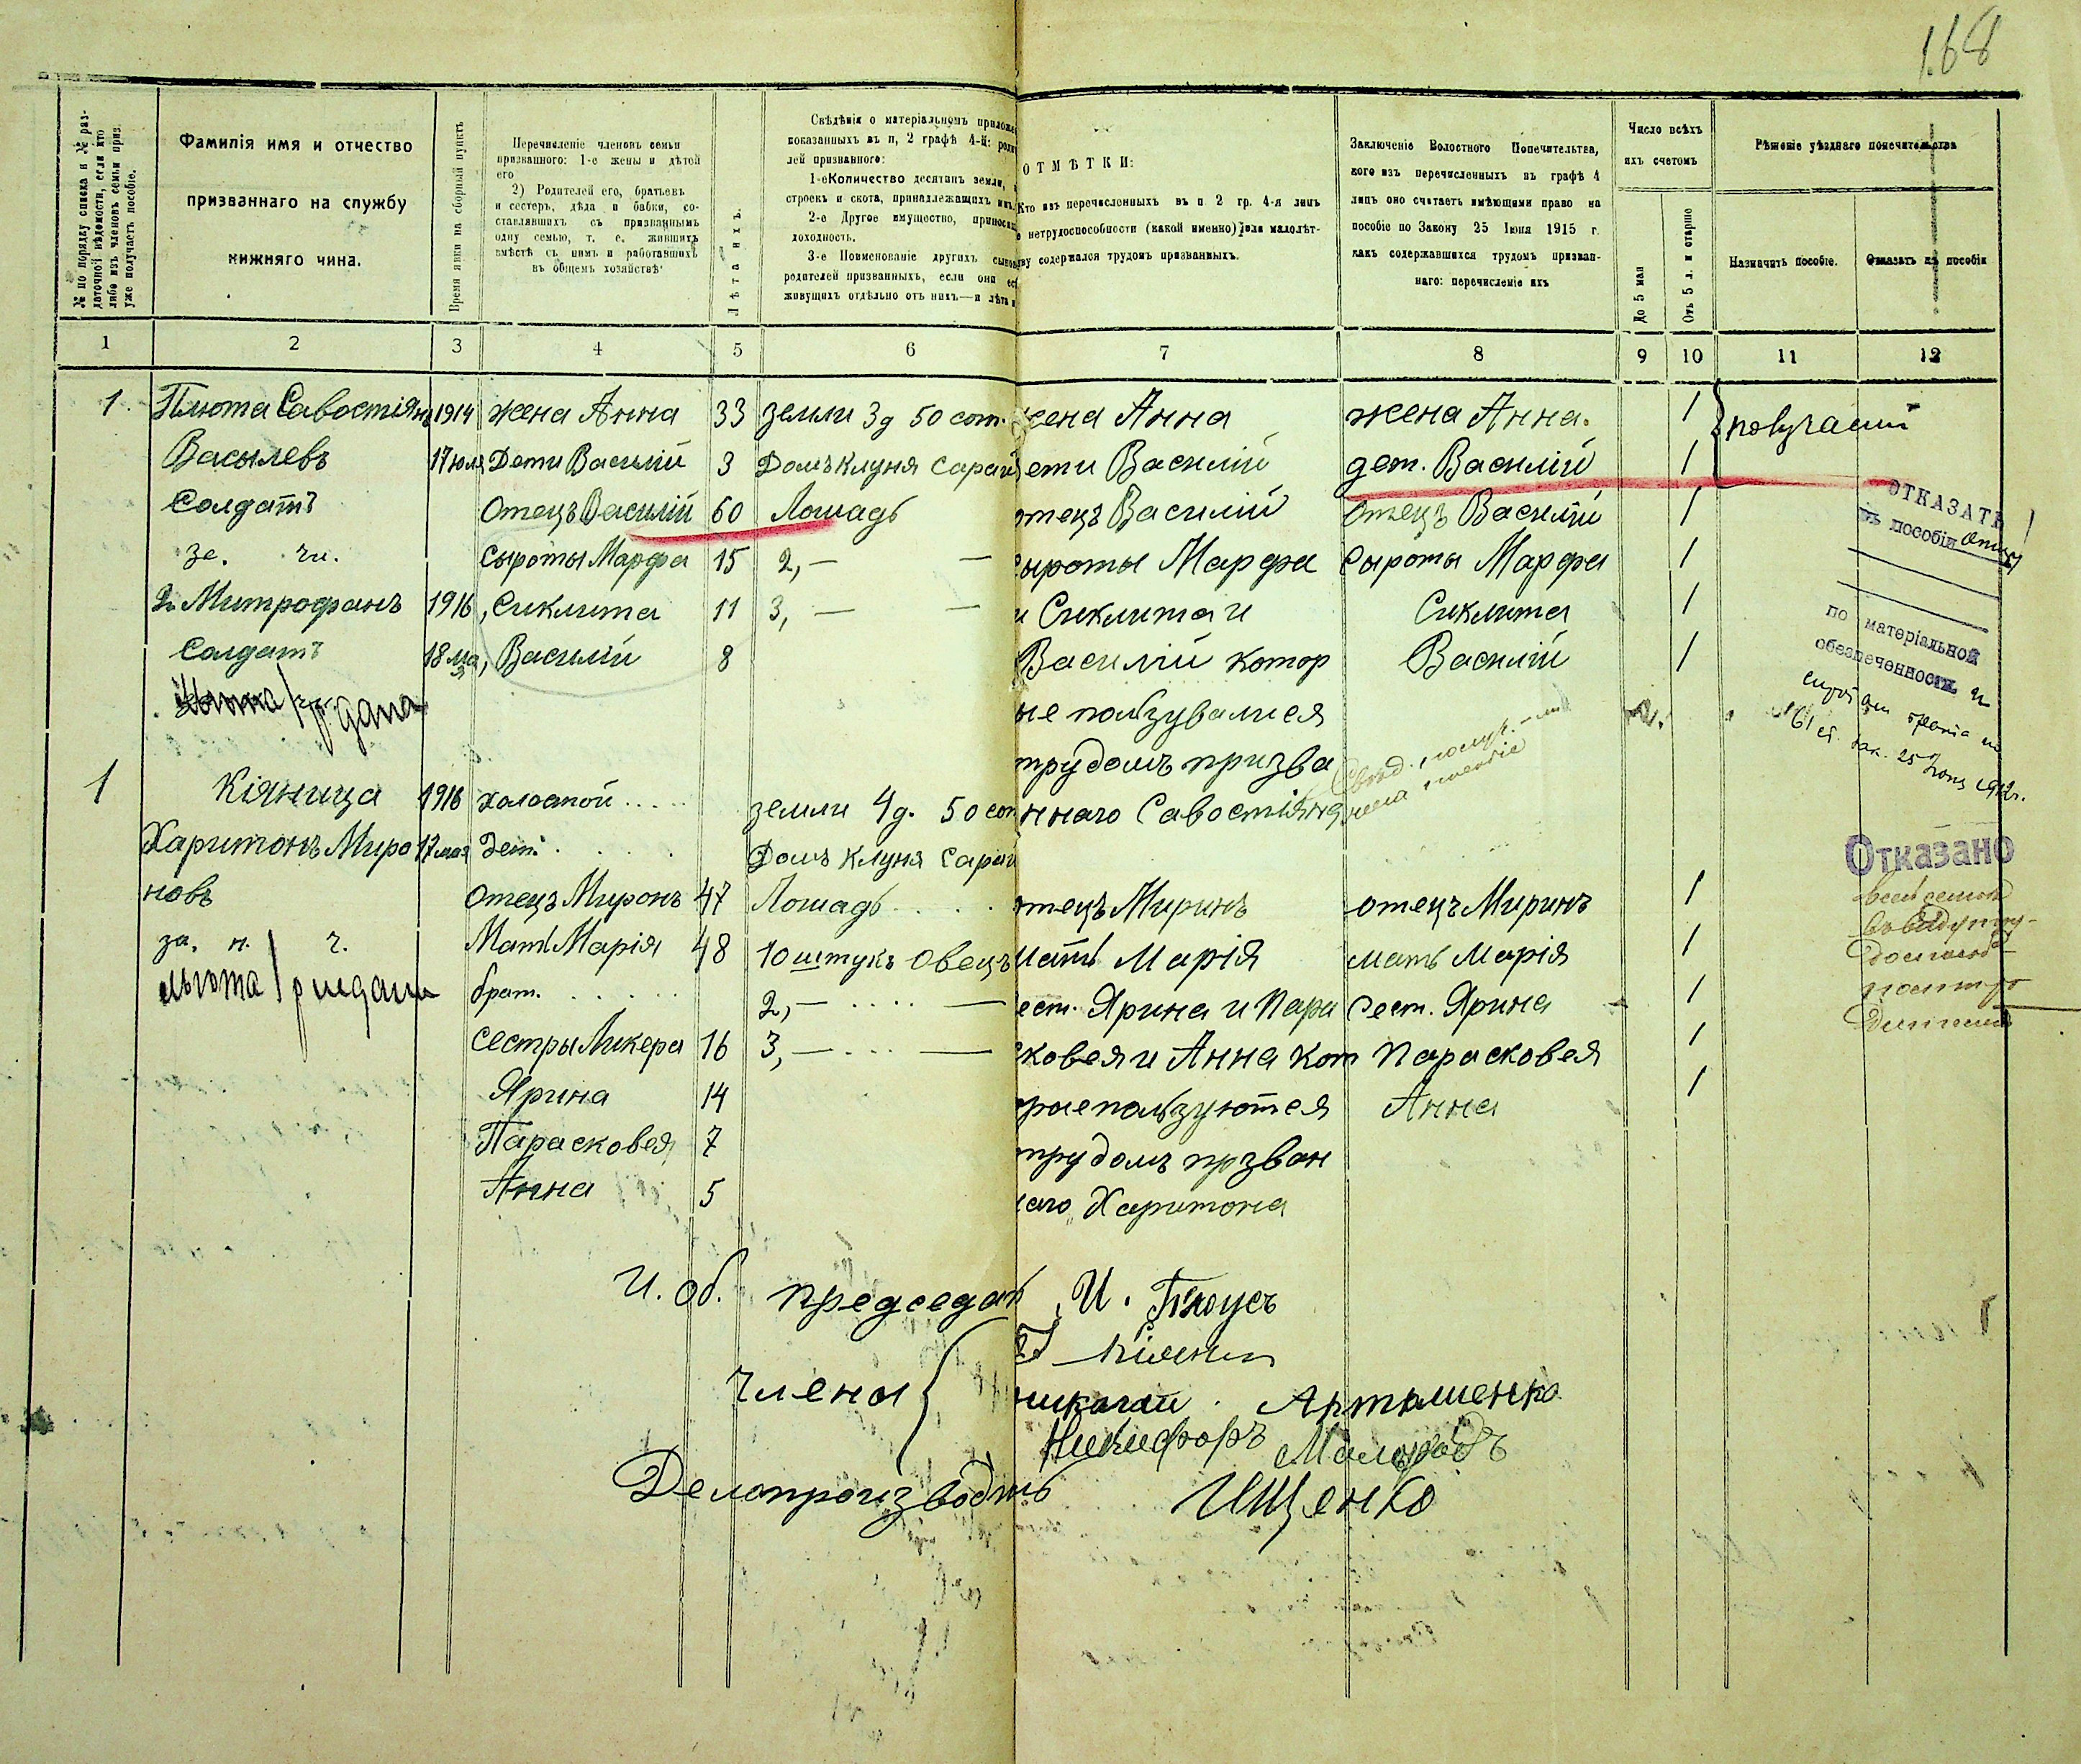 168
№ по порядку списка и № раз-
даточной вѣдомости, если кто
либо изъ членовъ семьи приз.
уже получаетъ пособіе.
Фамилія имя и отчество
призваннаго на службу
нижняго чина.
Время явки на сборный пунктъ
Перечисленіе членовъ семьи
призваннаго: 1-е жены и дѣтей
его
2) Родителей его, братьевъ
и сестеръ, дѣда и бабки, со-
ставлявшихъ съ призваннымъ
одну семью, т. е. жившихъ
вмѣстѣ съ нимъ и работавшихъ
въ общемъ хозяйствѣ
Лѣта ихъ.
Свѣдѣнія о матеріальномъ
показанныхъ въ п, 2 графѣ 4-й:
лей призваннаго:
1-е Количество десятинъ земли,
строекъ и скота, принадлежащихъ
2-е Другое имущество,
доходность.
3-е Поименованіе другихъ
родителей призванныхъ, если они
живущихъ отдѣльно отъ нихъ—и лѣта
ОТМѢТКИ:
Кто изъ перечисленныхъ въ п 2 гр. 4-я лицъ
нетрудоспособности (какой именно) или малолѣт-
ву содержался трудомъ призванныхъ.
Заключеніе Волостного Попечительтва,
кого изъ перечисленныхъ въ графѣ 4
лицъ оно считаетъ имѣющими право на
пособіе по Закону 25 Іюня 1915 г
какъ содержавшихся трудомъ призван-
наго: перечисленіе ихъ
Число всѣхъ
ихъ счетомъ
До 5 мая
Отъ 5 л. и старше
Рѣшеніе уѣзднаго попечительства
Назначить пособіе.
Отказать въ пособіи
1 2 3 4 5 6 7 8 9 10 11 12
1. Плюта Савостіянъ 1914 жена Анна 33 земли 3д 50 сот. жена Анна жена Анна. 1
Васылевъ 17 юля Дети Василій 3 Домъ клуня сарай дети Василій дет. Василій 1
Солдатъ Отецъ Василій 60 Лошадь отецъ Василій отецъ Василій 1
Сыроты Марфа 15 2,— — сыроты Марфа Сыроты Марфа 1
2. Митрофанъ 1916 Сиклита 11 3,— — и Сиклита и Сиклита 1
Солдатъ 18 Василій 8 Василій котор Василій 1
ые ползувалися
трудомъ призва
ннаго Савостіяна
ОТКАЗАТЬ
въ пособіи отцу
по матеріальной
обезпеченности и
61 ст. зак. 25 Іюня 1912г.
1 Кіяница 1916 холостой земли 4д. 50 сот
Харитонъ Миро 17 мая Дети Домъ клуня сарай
новъ Отецъ Миронъ 47 Лошадь отецъ Миринъ отецъ Миринъ 1
за. н. ч. Мать Марія 48 10 штукъ овецъ мать Марія мать Марія 1
льгота
брат. 2,— — сест. Ярина и Пара Сест. Ярина 1
Сестры Ликера 16 3,— — сковея и Анна кот Парасковея 1
Ярина 14 орые ползуются Анна 1
Парасковея 7 трудомъ прзван
Анна 5 наго Харитона
Отказано
И. об. председат И. Бѣлоусъ
Члены
Николай Артюшенко
Никифоръ
Делопроизводть Ищенко